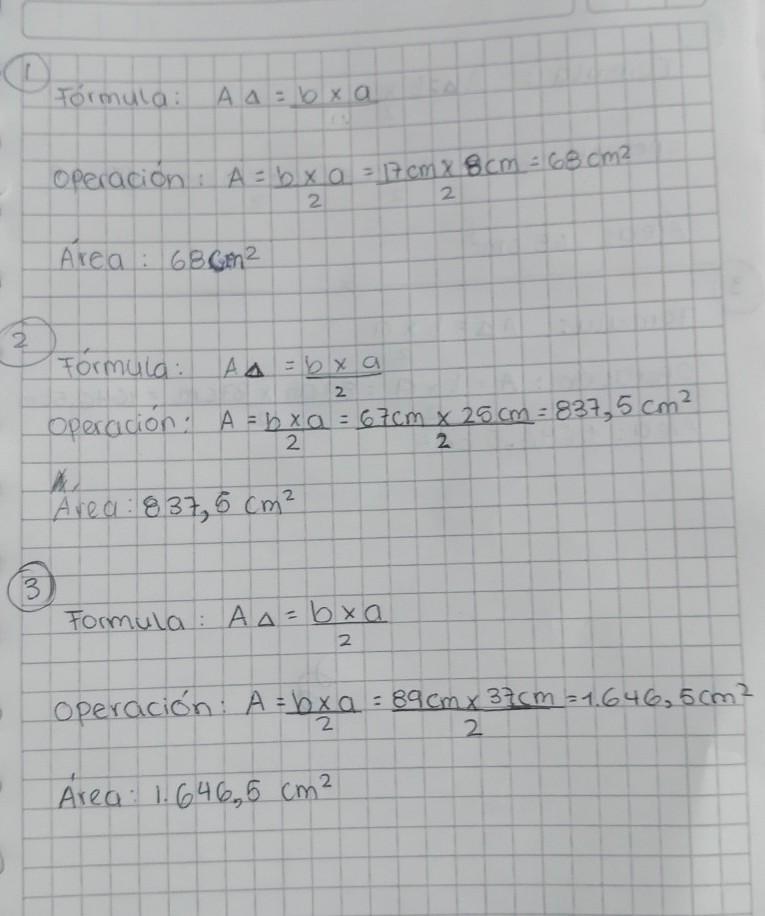 1
Fórmula: A △ = b x a
Operación: A = b x a / 2 = 17cm x 8cm / 2 = 68 cm²
Área: 68cm²
2
Fórmula: A △ = b x a / 2
Operación: A = b x a / 2 = 67cm x 25cm / 2 = 837,5 cm²
Área: 837,5 cm²
3
Formula: A △ = b x a / 2
Operación: A = b x a / 2 = 89cm x 37cm / 2 = 1.646,5cm²
Área: 1.646,5 cm²